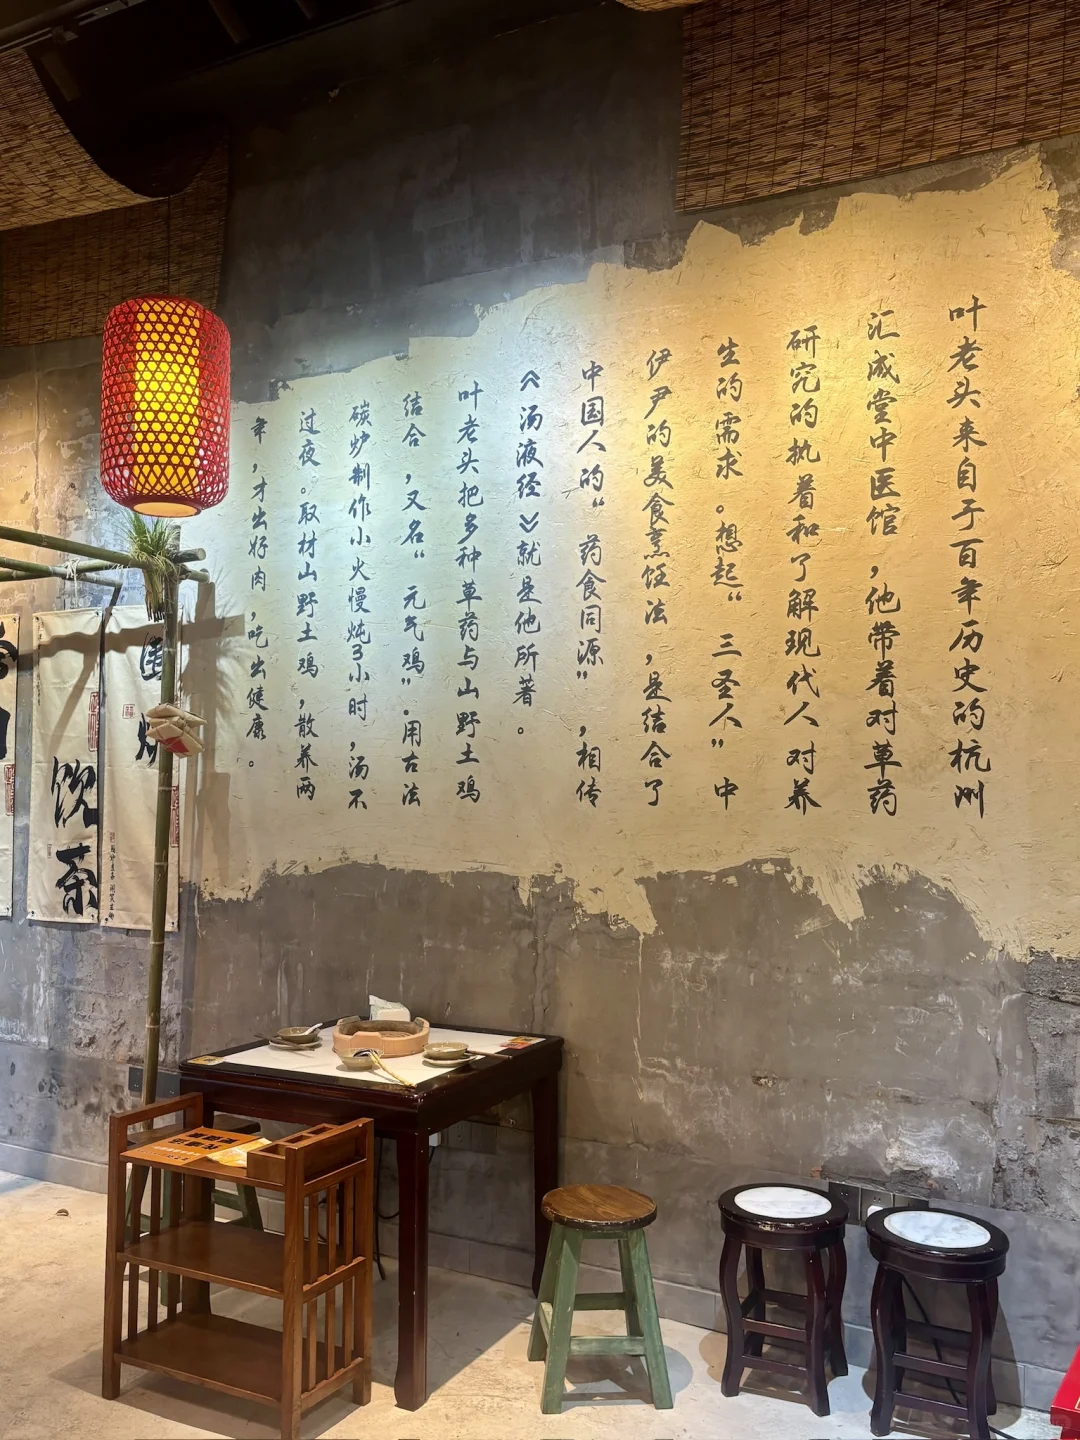 叶老头来自于百年历史的杭州
汇成堂中医馆，他带着对草药
研究的执着和了解现代人对养
生的需求。想起“三圣人”中
伊尹的美食烹饪法，是结合了
中国人的“药食同源”，相传
《汤液经》就是他所著。
叶老头把多种草药与山野土鸡
结合，又名“元气鸡”。用古法
碳炉制作小火慢炖3小时，汤不
过夜。取材山野土鸡，散养两
年，才出好肉，吃出健康。
围炉
饮茶